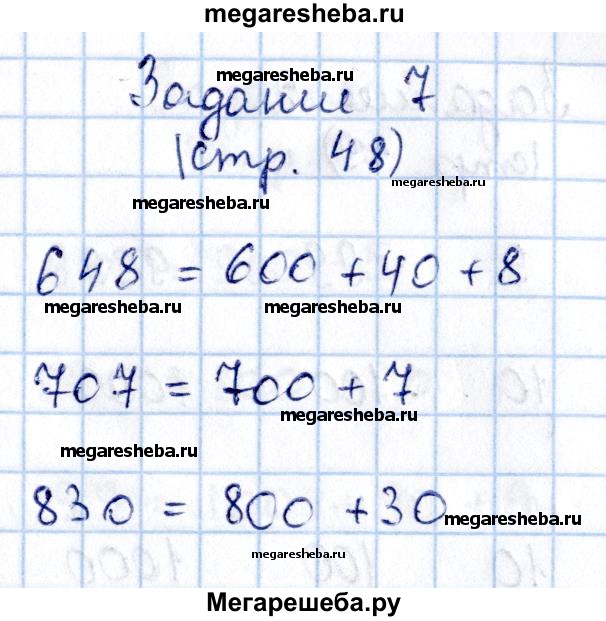 megaresheba.ru
megaresheba.ru
Задание 7
(стр. 48)
megaresheba.ru
megaresheba.ru
648 = 600 + 40 + 8
megaresheba.ru megaresheba.ru
707 = 700 + 7
megaresheba.ru
megaresheba.ru
830 = 800 + 30
megaresheba.ru
megaresheba.ru
Мегарешеба.ру